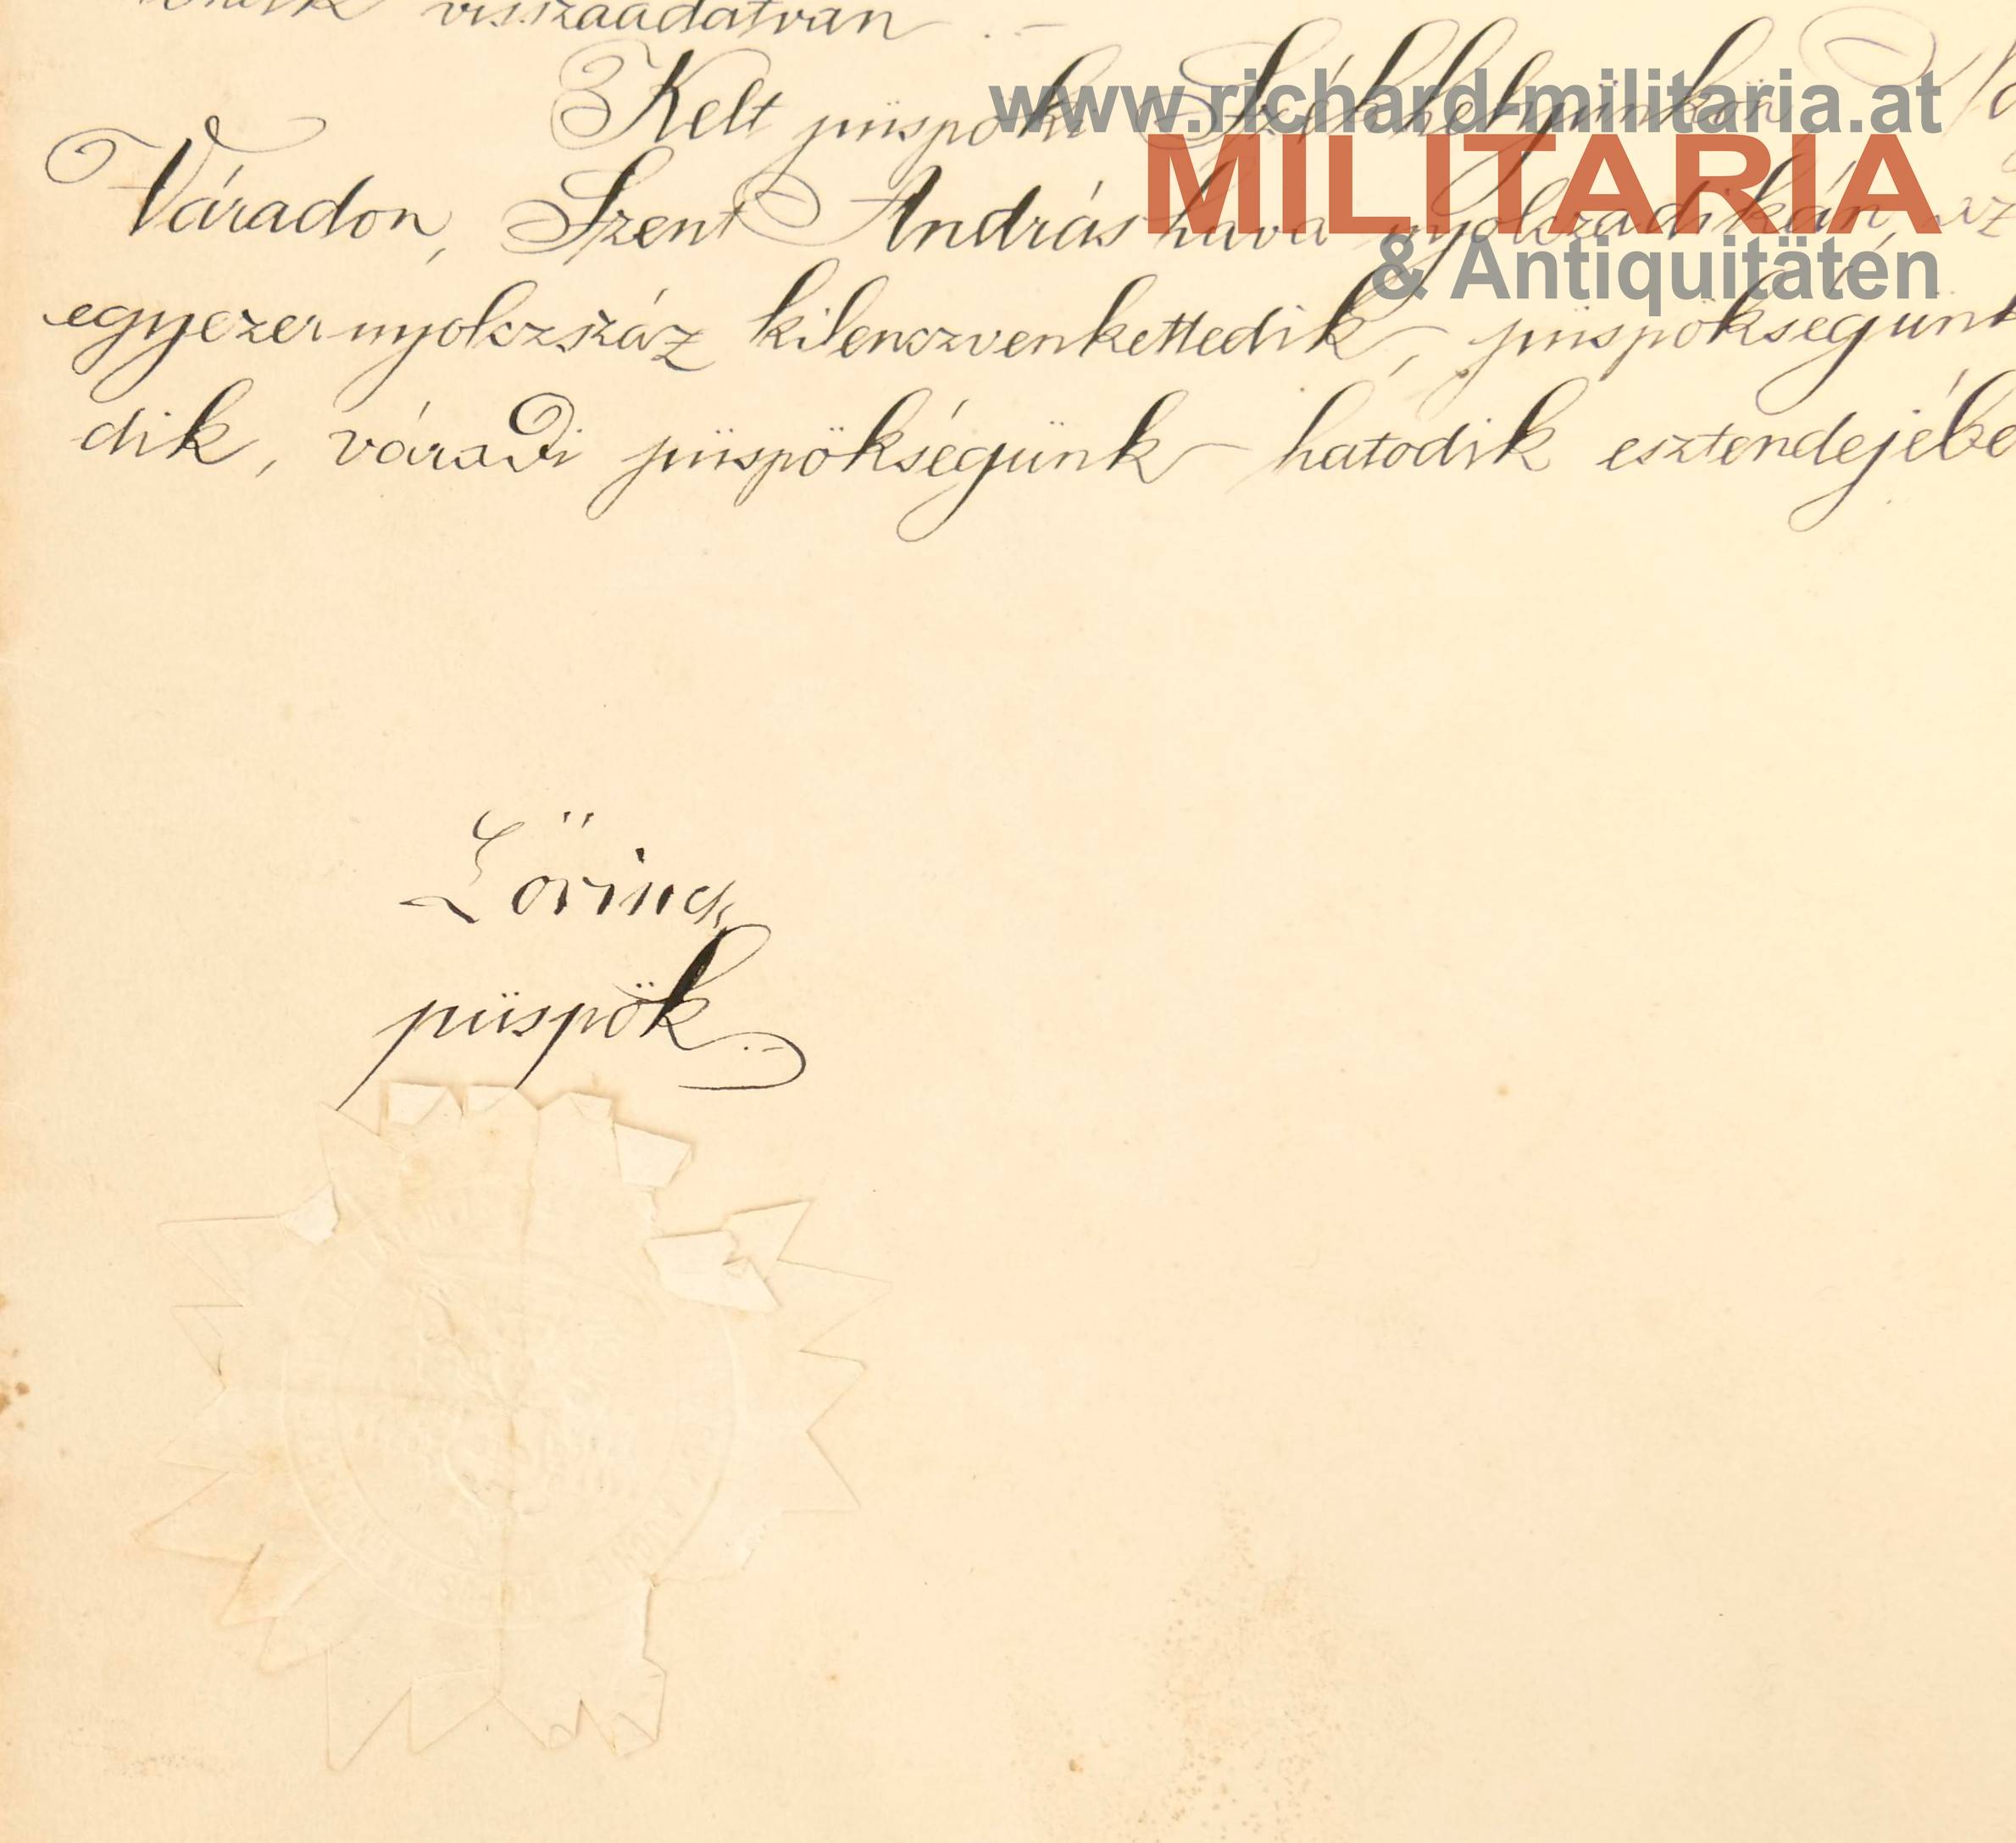 visszaadatván .-
Kelt püspöki Székhelyünkön
Váradon, Szent András hava nyolczadikán, az
egyezernyolczszáz kilenczvenkettedik, püspökségünk
dik, váradi püspökségünk hatodik esztendejébe
Lőrincz
püspök
www.richard-militaria.at
MILITARIA
& Antiquitäten